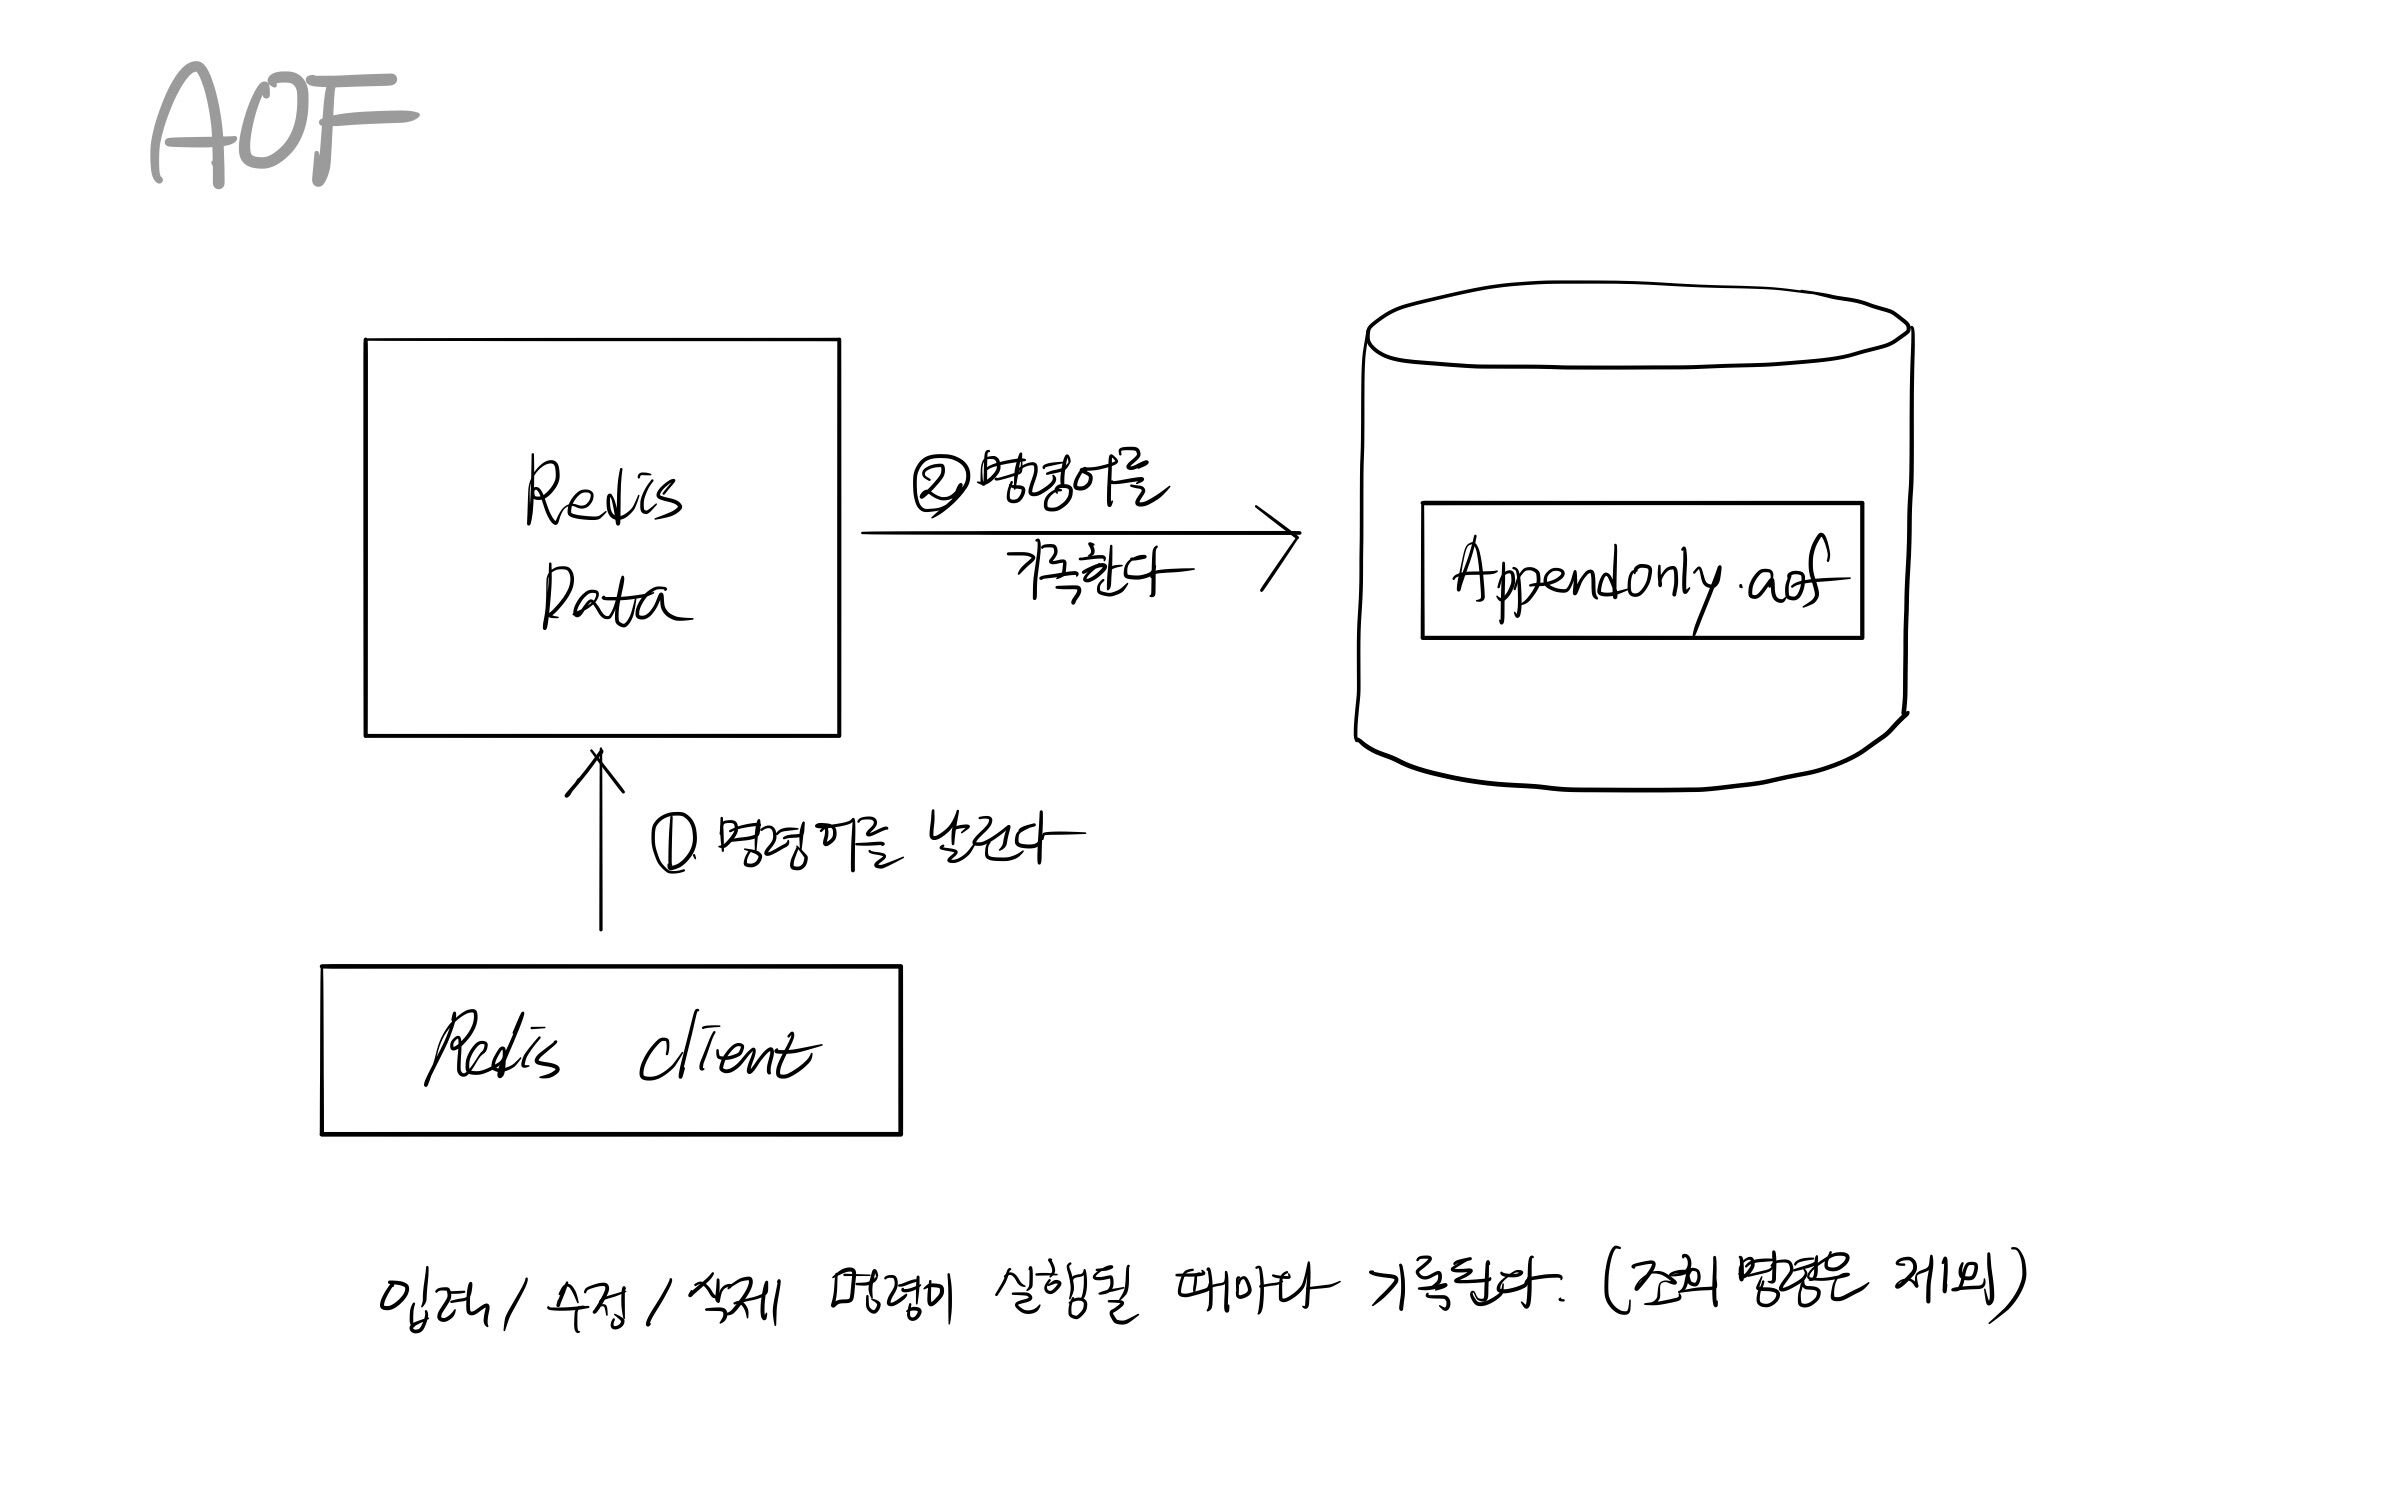 AOF
Redis
Data
② 명령어를
기록한다
Appendonly.aof
① 명령어를 날린다
Redis client
입력/수정/삭제 명령이 실행될 때마다 기록된다. (조회 명령은 제외)